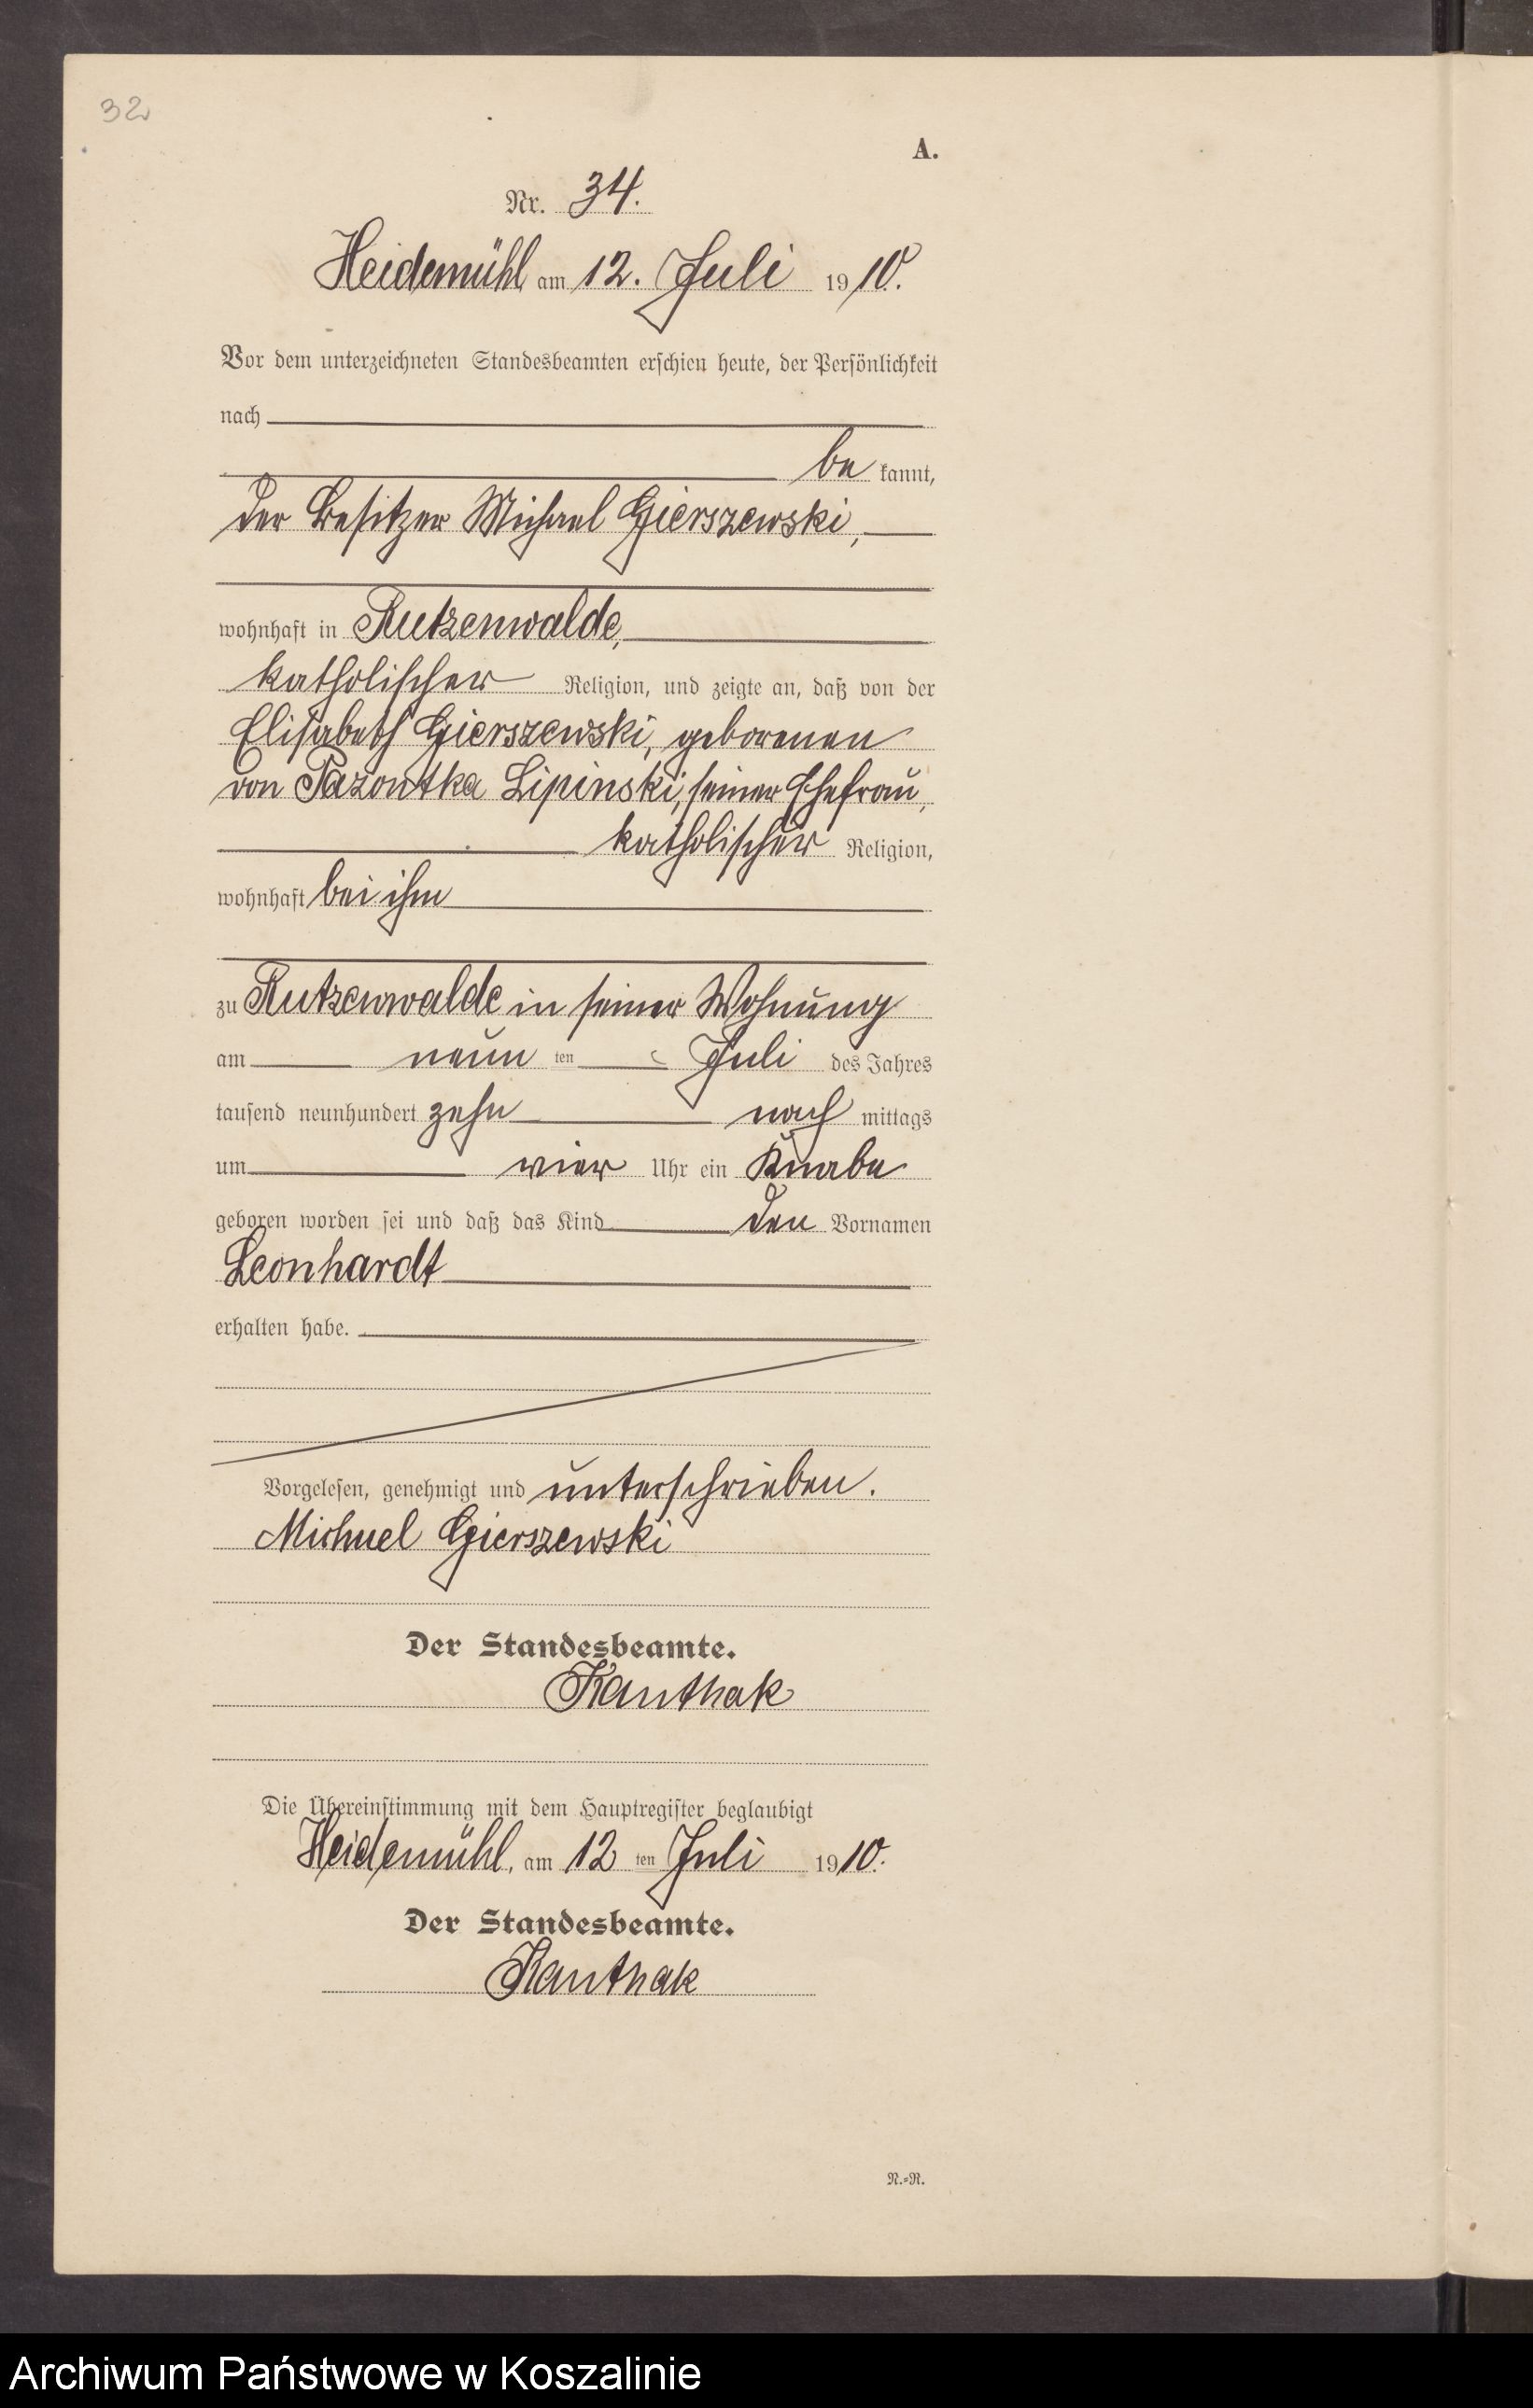 32
A.
Nr. 34.
Heidemühl, am 12. Juli 1910.
Vor dem unterzeichneten Standesbeamten erschien heute, der Persönlichkeit
nach
be kannt,
der Besitzer Michael Gierszewski,
wohnhaft in Rutzenwalde,
katholischer Religion, und zeigte an, daß von der
Elisabeth Gierszewski, geborenen
von Pazontka Lipinski, seiner Ehefrau,
katholischer Religion,
wohnhaft bei ihm
zu Rutzenwalde in seiner Wohnung
am neun ten Juli des Jahres
tausend neunhundert zehn nach mittags
um vier Uhr ein Knabe
geboren worden sei und daß das Kind den Vornamen
Leonhardt
erhalten habe.
Vorgelesen, genehmigt und unterschrieben.
Michael Gierszewski
Der Standesbeamte.
Kanthak
Die Übereinstimmung mit dem Hauptregister beglaubigt
Heidemühl, am 12 ten Juli 1910.
Der Standesbeamte.
Kanthak
N.=R.
Archiwum Państwowe w Koszalinie